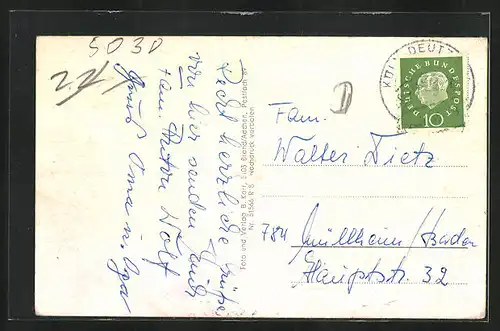 5030
Recht herzliche Grüße
von hier senden Euch
Fam. Anton Wolf
Gruß Oma u. Opa
Foto und Verlag B. Korr, 5103 Brand/Aachen, Postfach 81
Nachdruck verboten
D
KÖLN-DEUTZ
DEUTSCHE BUNDESPOST
10
Fam.
Walter Dietz
784 Müllheim/Baden
Hauptstr. 32